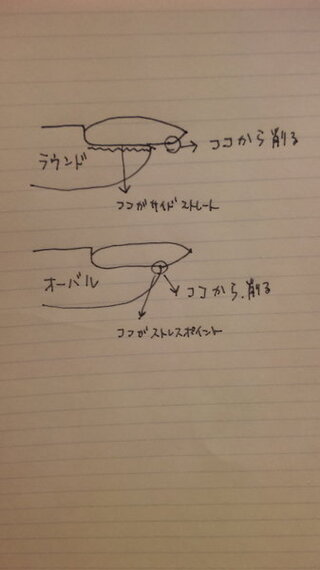 ココから削る
ラウンド
ココがサイドストレート
オーバル
ココから、削る
ココがストレスポイント